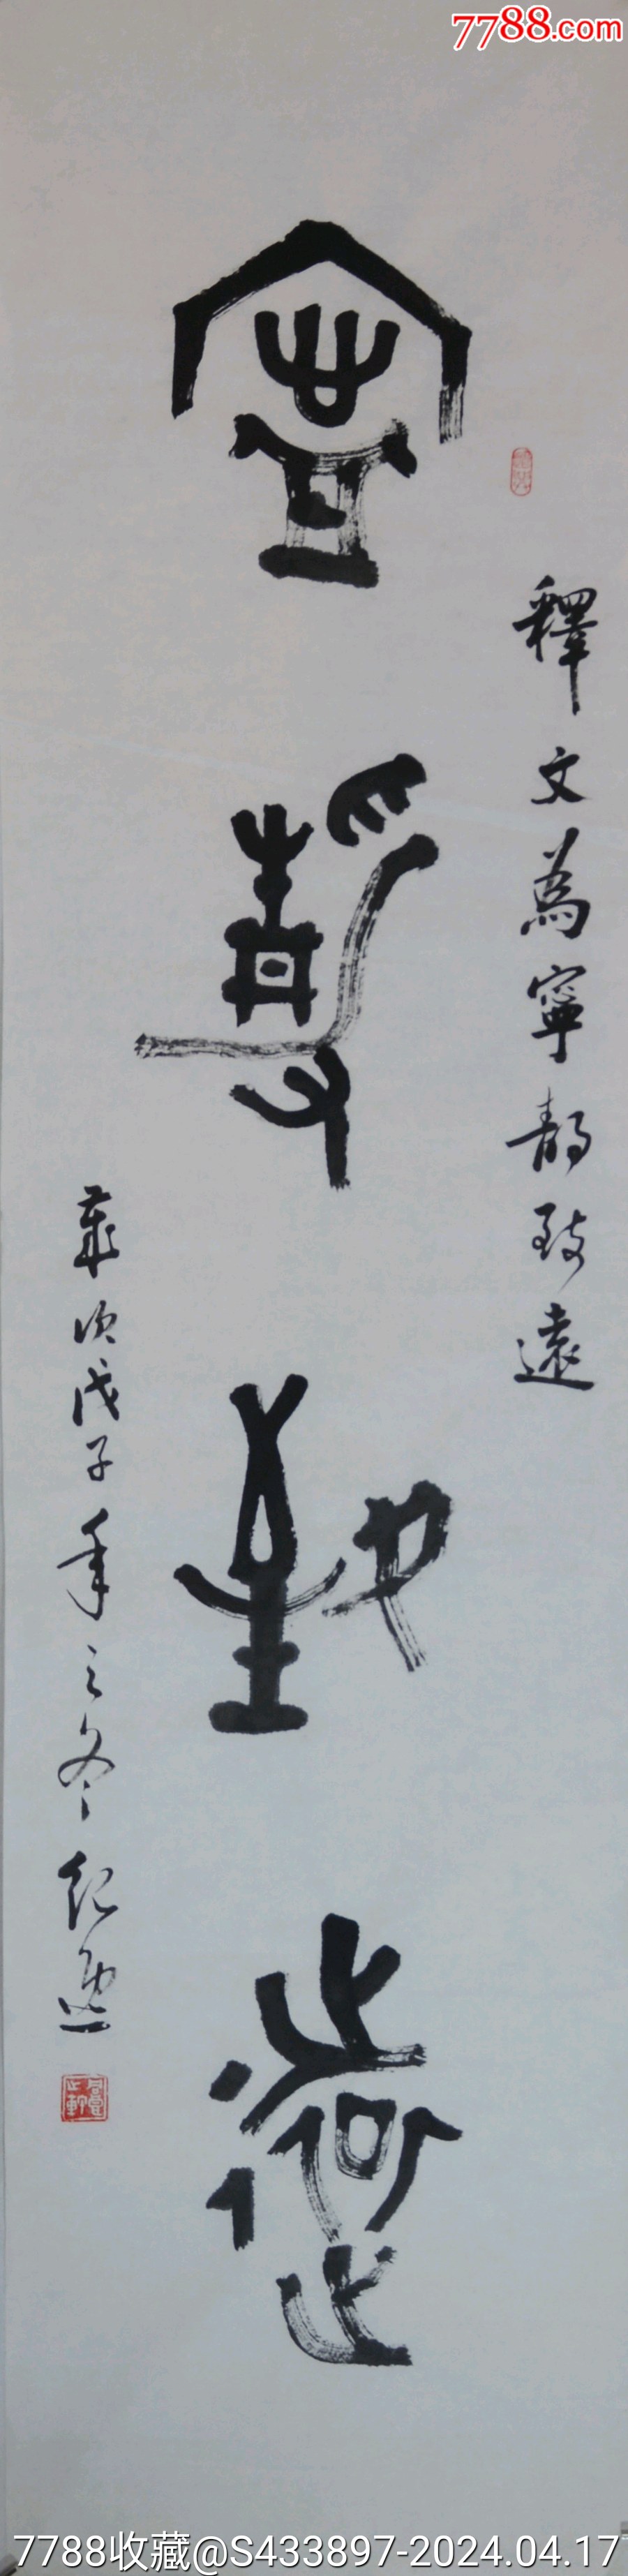 7788.com
寧靜致遠
釋文為寧靜致遠
歲次戊子年之冬纪
7788收藏@S433897-2024.04.17